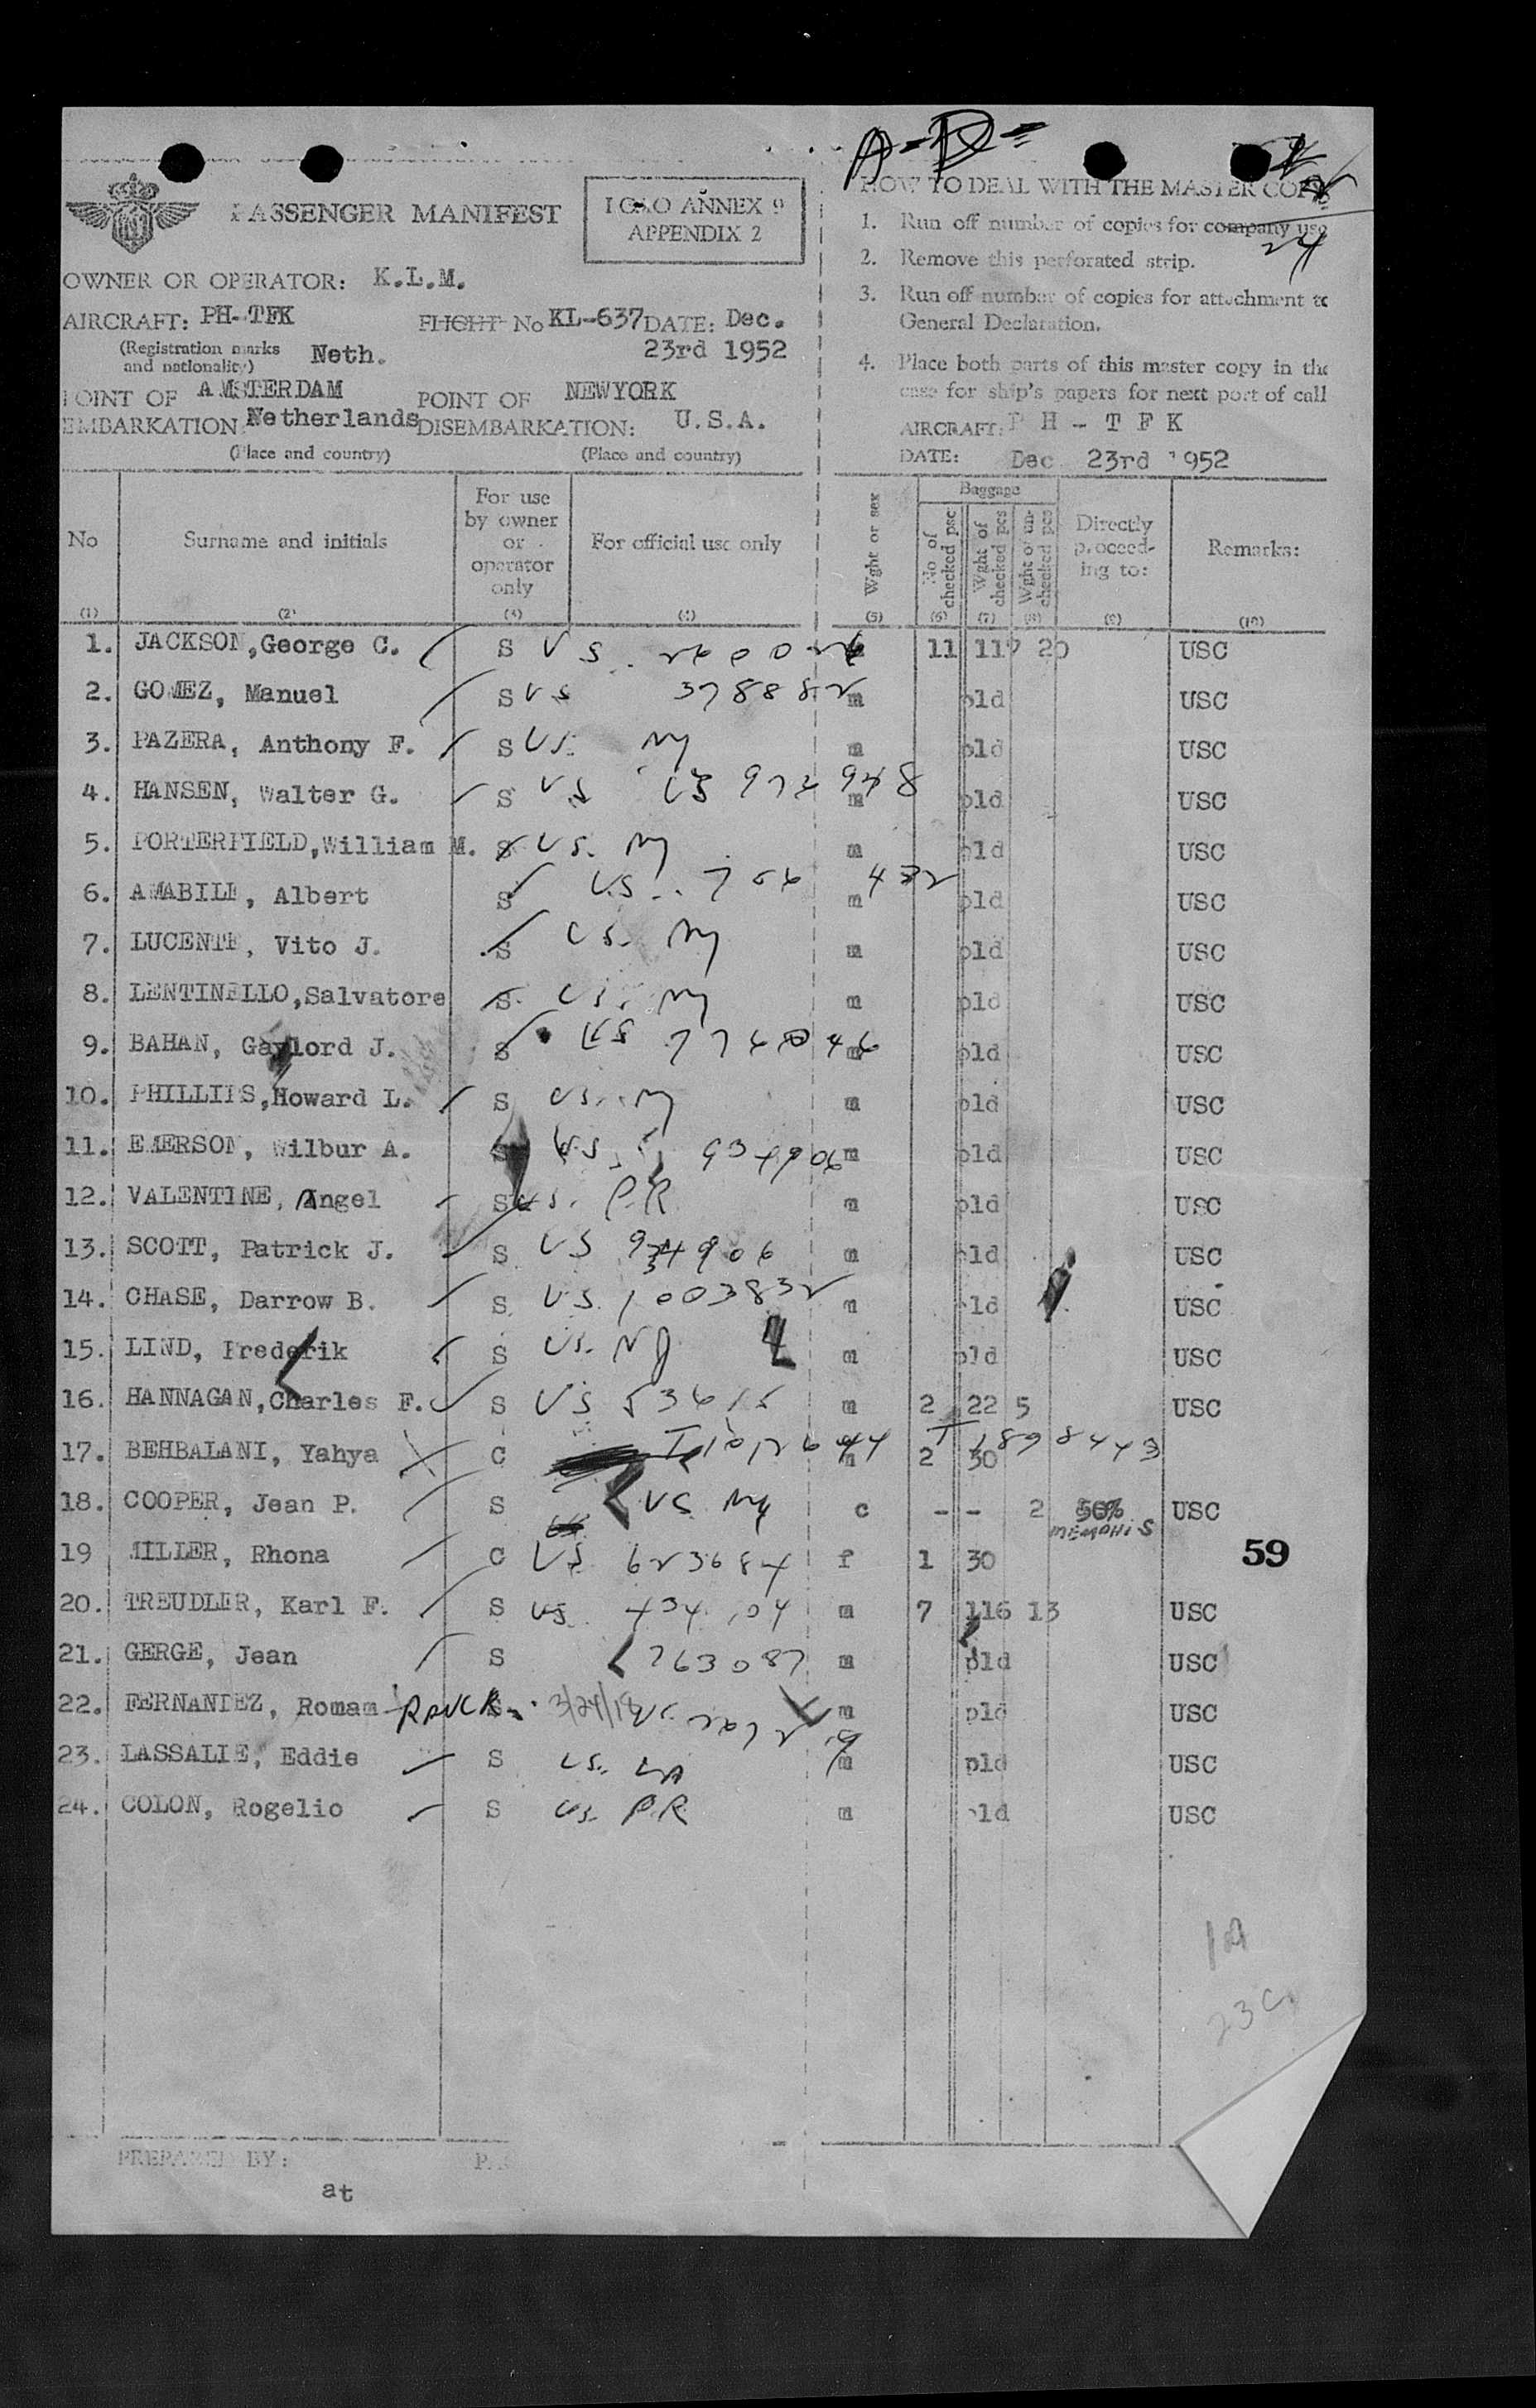 A-D=
PASSENGER MANIFEST
ICAO ANNEX 9
APPENDIX 2
HOW TO DEAL WITH THE MASTER COPY
1. Run off number of copies for company use
2. Remove this perforated strip.
24
3. Run off number of copies for attachment to
General Declaration.
4. Place both parts of this master copy in the
case for ship's papers for next port of call
OWNER OR OPERATOR: K.L.M.
AIRCRAFT: PH-TFK
FLIGHT No KL-637 DATE: Dec.
23rd 1952
(Registration marks
and nationality) Neth.
POINT OF AMSTERDAM
EMBARKATION Netherlands
(Place and country)
POINT OF NEWYORK
DISEMBARKATION: U.S.A.
(Place and country)
AIRCRAFT: PH - T F K
DATE: Dec 23rd 1952
No
Surname and initials
For use
by owner
or
operator
only
For official use only
Wght or sex
Baggage
No of
checked psc
Wght of
checked pcs
Wght of un-
checked pcs
Directly
proceed-
ing to:
Remarks:
(1) (2) (3) (4) (5) (6) (7) (8) (9) (10)
1. JACKSON,George C. S US. 11 119 20 USC
2. GOMEZ, Manuel S US 378882 m pld USC
3. PAZERA, Anthony F. S US. NY m pld USC
4. HANSEN, Walter G. S US US 972948 m pld USC
5. PORTERFIELD,William M. S US. NY m pld USC
6. AMABILE, Albert S US. 432 m pld USC
7. LUCENTE, Vito J. S US. NY m pld USC
8. LENTINELLO,Salvatore S US. NY m pld USC
9. BAHAN, Gaylord J. S US m pld USC
10. PHILLIPS,Howard L. S US. NY m pld USC
11. EMERSON, Wilbur A. S US. 934906 m pld USC
12. VALENTINE, Angel S US. P.R. m pld USC
13. SCOTT, Patrick J. S US 934906 m pld USC
14. CHASE, Darrow B. S US. 1003832 m pld USC
15. LIND, Frederik S US. NJ m pld USC
16. HANNAGAN,Charles F. S US 53615 m 2 22 5 USC
17. BEHBALANI, Yahya C m 2 30 T 1898443
18. COOPER, Jean P. S US NY c - - 2 50% USC
MEMPHIS
19 MILLER, Rhona C US 623684 f 1 30
59
20. TREUDLER, Karl F. S US 434104 m 7 116 13 USC
21. GERGE, Jean S 763087 m pld USC
22. FERNANDEZ, Romam S 3/24/18 US. m pld USC
23. LASSALLE, Eddie S US. LA m pld USC
24. COLON, Rogelio S US. P.R m pld USC
1A
23C
PREPARED BY:
at